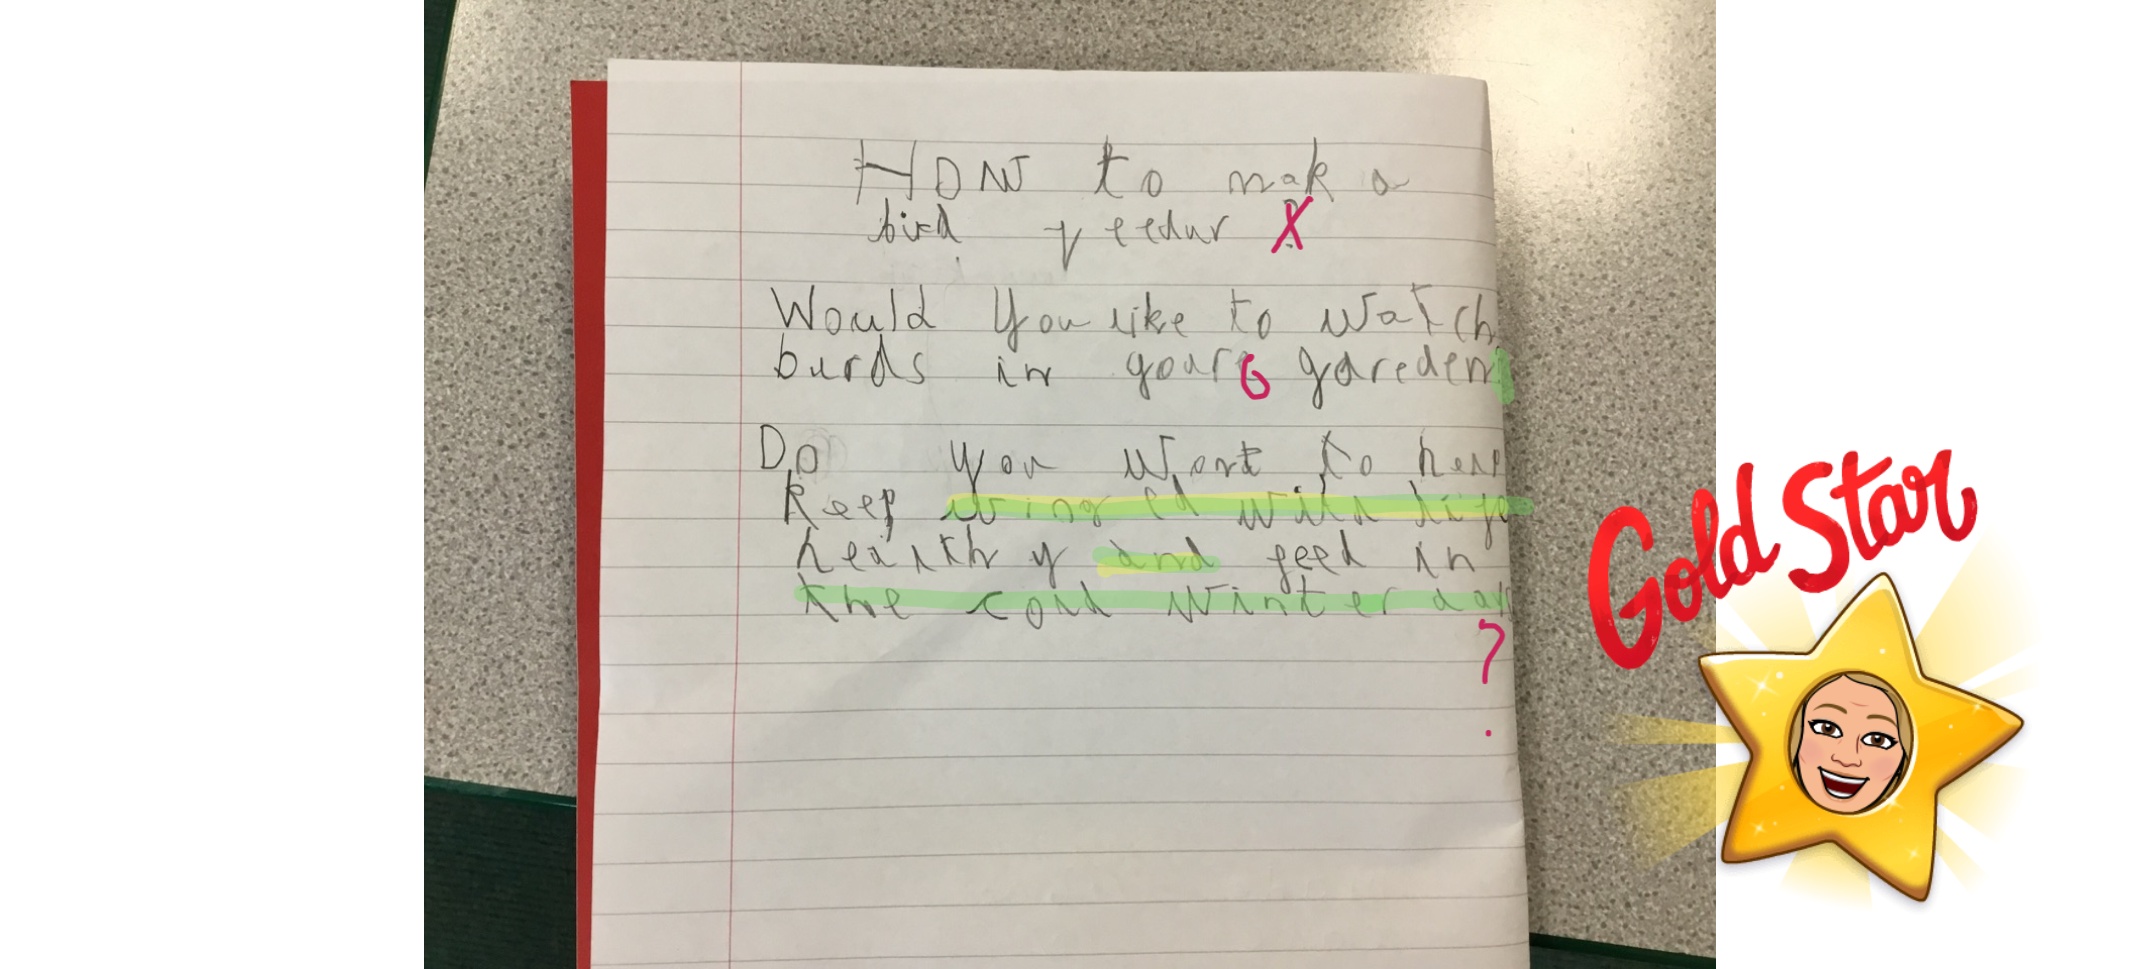 How to mak a
bird feedur ?
Would you like to watch
burds in your gareden
Do you wont to help
keep winged wild life
healthy and feed in
the cold winter days
?
Gold Star